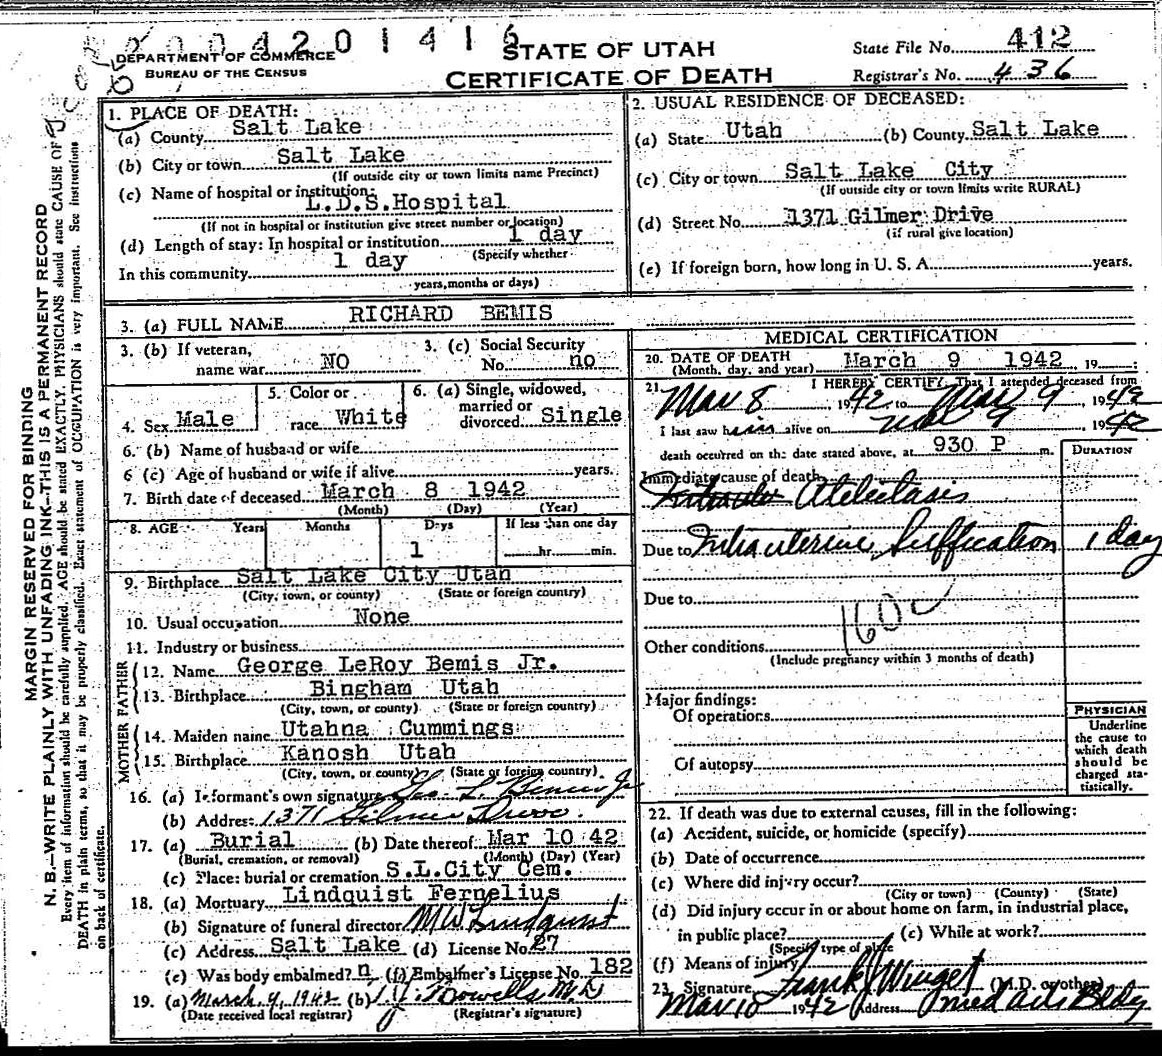 2004201416
DEPARTMENT OF COMMERCE
BUREAU OF THE CENSUS
STATE OF UTAH
CERTIFICATE OF DEATH
State File No. 412
Registrar's No. 436
MARGIN RESERVED FOR BINDING
N. B.—WRITE PLAINLY WITH UNFADING INK—THIS IS A PERMANENT RECORD
Every item of information should be carefully supplied. AGE should be stated EXACTLY. PHYSICIANS should state CAUSE OF
DEATH in plain terms, so that it may be properly classified. Exact statement of OCCUPATION is very important. See instructions
on back of certificate.
1. PLACE OF DEATH:
(a) County Salt Lake
(b) City or town Salt Lake
(If outside city or town limits name Precinct)
(c) Name of hospital or institution:
L.D.S.Hospital
(If not in hospital or institution give street number or location)
(d) Length of stay: In hospital or institution 1 day
(Specify whether
In this community 1 day
years, months or days)
2. USUAL RESIDENCE OF DECEASED:
(a) State Utah (b) County Salt Lake
(c) City or town Salt Lake City
(If outside city or town limits write RURAL)
(d) Street No. 1371 Gilmer Drive
(if rural give location)
(e) If foreign born, how long in U. S. A. years.
3. (a) FULL NAME RICHARD BEMIS
3. (b) If veteran,
name war NO
3. (c) Social Security
No. no
4. Sex Male
5. Color or
race White
6. (a) Single, widowed,
married or
divorced Single
6. (b) Name of husband or wife
6 (c) Age of husband or wife if alive years.
7. Birth date of deceased March 8 1942
(Month) (Day) (Year)
8. AGE Years Months Days If less than one day
1 hr. min.
9. Birthplace Salt Lake City Utah
(City, town, or county) (State or foreign country)
10. Usual occupation None
11. Industry or business
FATHER
12. Name George LeRoy Bemis Jr.
13. Birthplace Bingham Utah
(City, town, or county) (State or foreign country)
MOTHER
14. Maiden name Utahna Cummings
15. Birthplace Kanosh Utah
(City, town, or county) (State or foreign country)
16. (a) Informant's own signature Geo L Bemis Jr
(b) Address 1371 Gilmer Drive.
17. (a) Burial (b) Date thereof Mar 10 42
(Burial, cremation, or removal) (Month) (Day) (Year)
(c) Place: burial or cremation S.L.City Cem.
18. (a) Mortuary Lindquist Fernelius
(b) Signature of funeral director M W Lindquist
(c) Address Salt Lake (d) License No. 27
(e) Was body embalmed? n (f) Embalmer's License No. 182
19. (a) March 9, 1942 (b) Dowells M.D
(Date received local registrar) (Registrar's signature)
MEDICAL CERTIFICATION
20. DATE OF DEATH March 9 1942, 19
(Month, day, and year)
21. I HEREBY CERTIFY, That I attended deceased from
Mar 8, 1942 to Mar 9, 1942
I last saw him alive on Mar 9 1942
death occurred on the date stated above, at 930 P m.
DURATION
Immediate cause of death
Atelectasis
Due to Intrauterine Suffication 1 day
Due to
160c
Other conditions
(Include pregnancy within 3 months of death)
Major findings:
Of operations
Of autopsy
PHYSICIAN
Underline
the cause to
which death
should be
charged sta-
tistically.
22. If death was due to external causes, fill in the following:
(a) Accident, suicide, or homicide (specify)
(b) Date of occurrence
(c) Where did injury occur?
(City or town) (County) (State)
(d) Did injury occur in or about home on farm, in industrial place,
in public place? (e) While at work?
(Specify type of place
(f) Means of injury
23. Signature Frank J Winget (M.D. or other)
Mar 10 1942 Address Med Arts Bldg